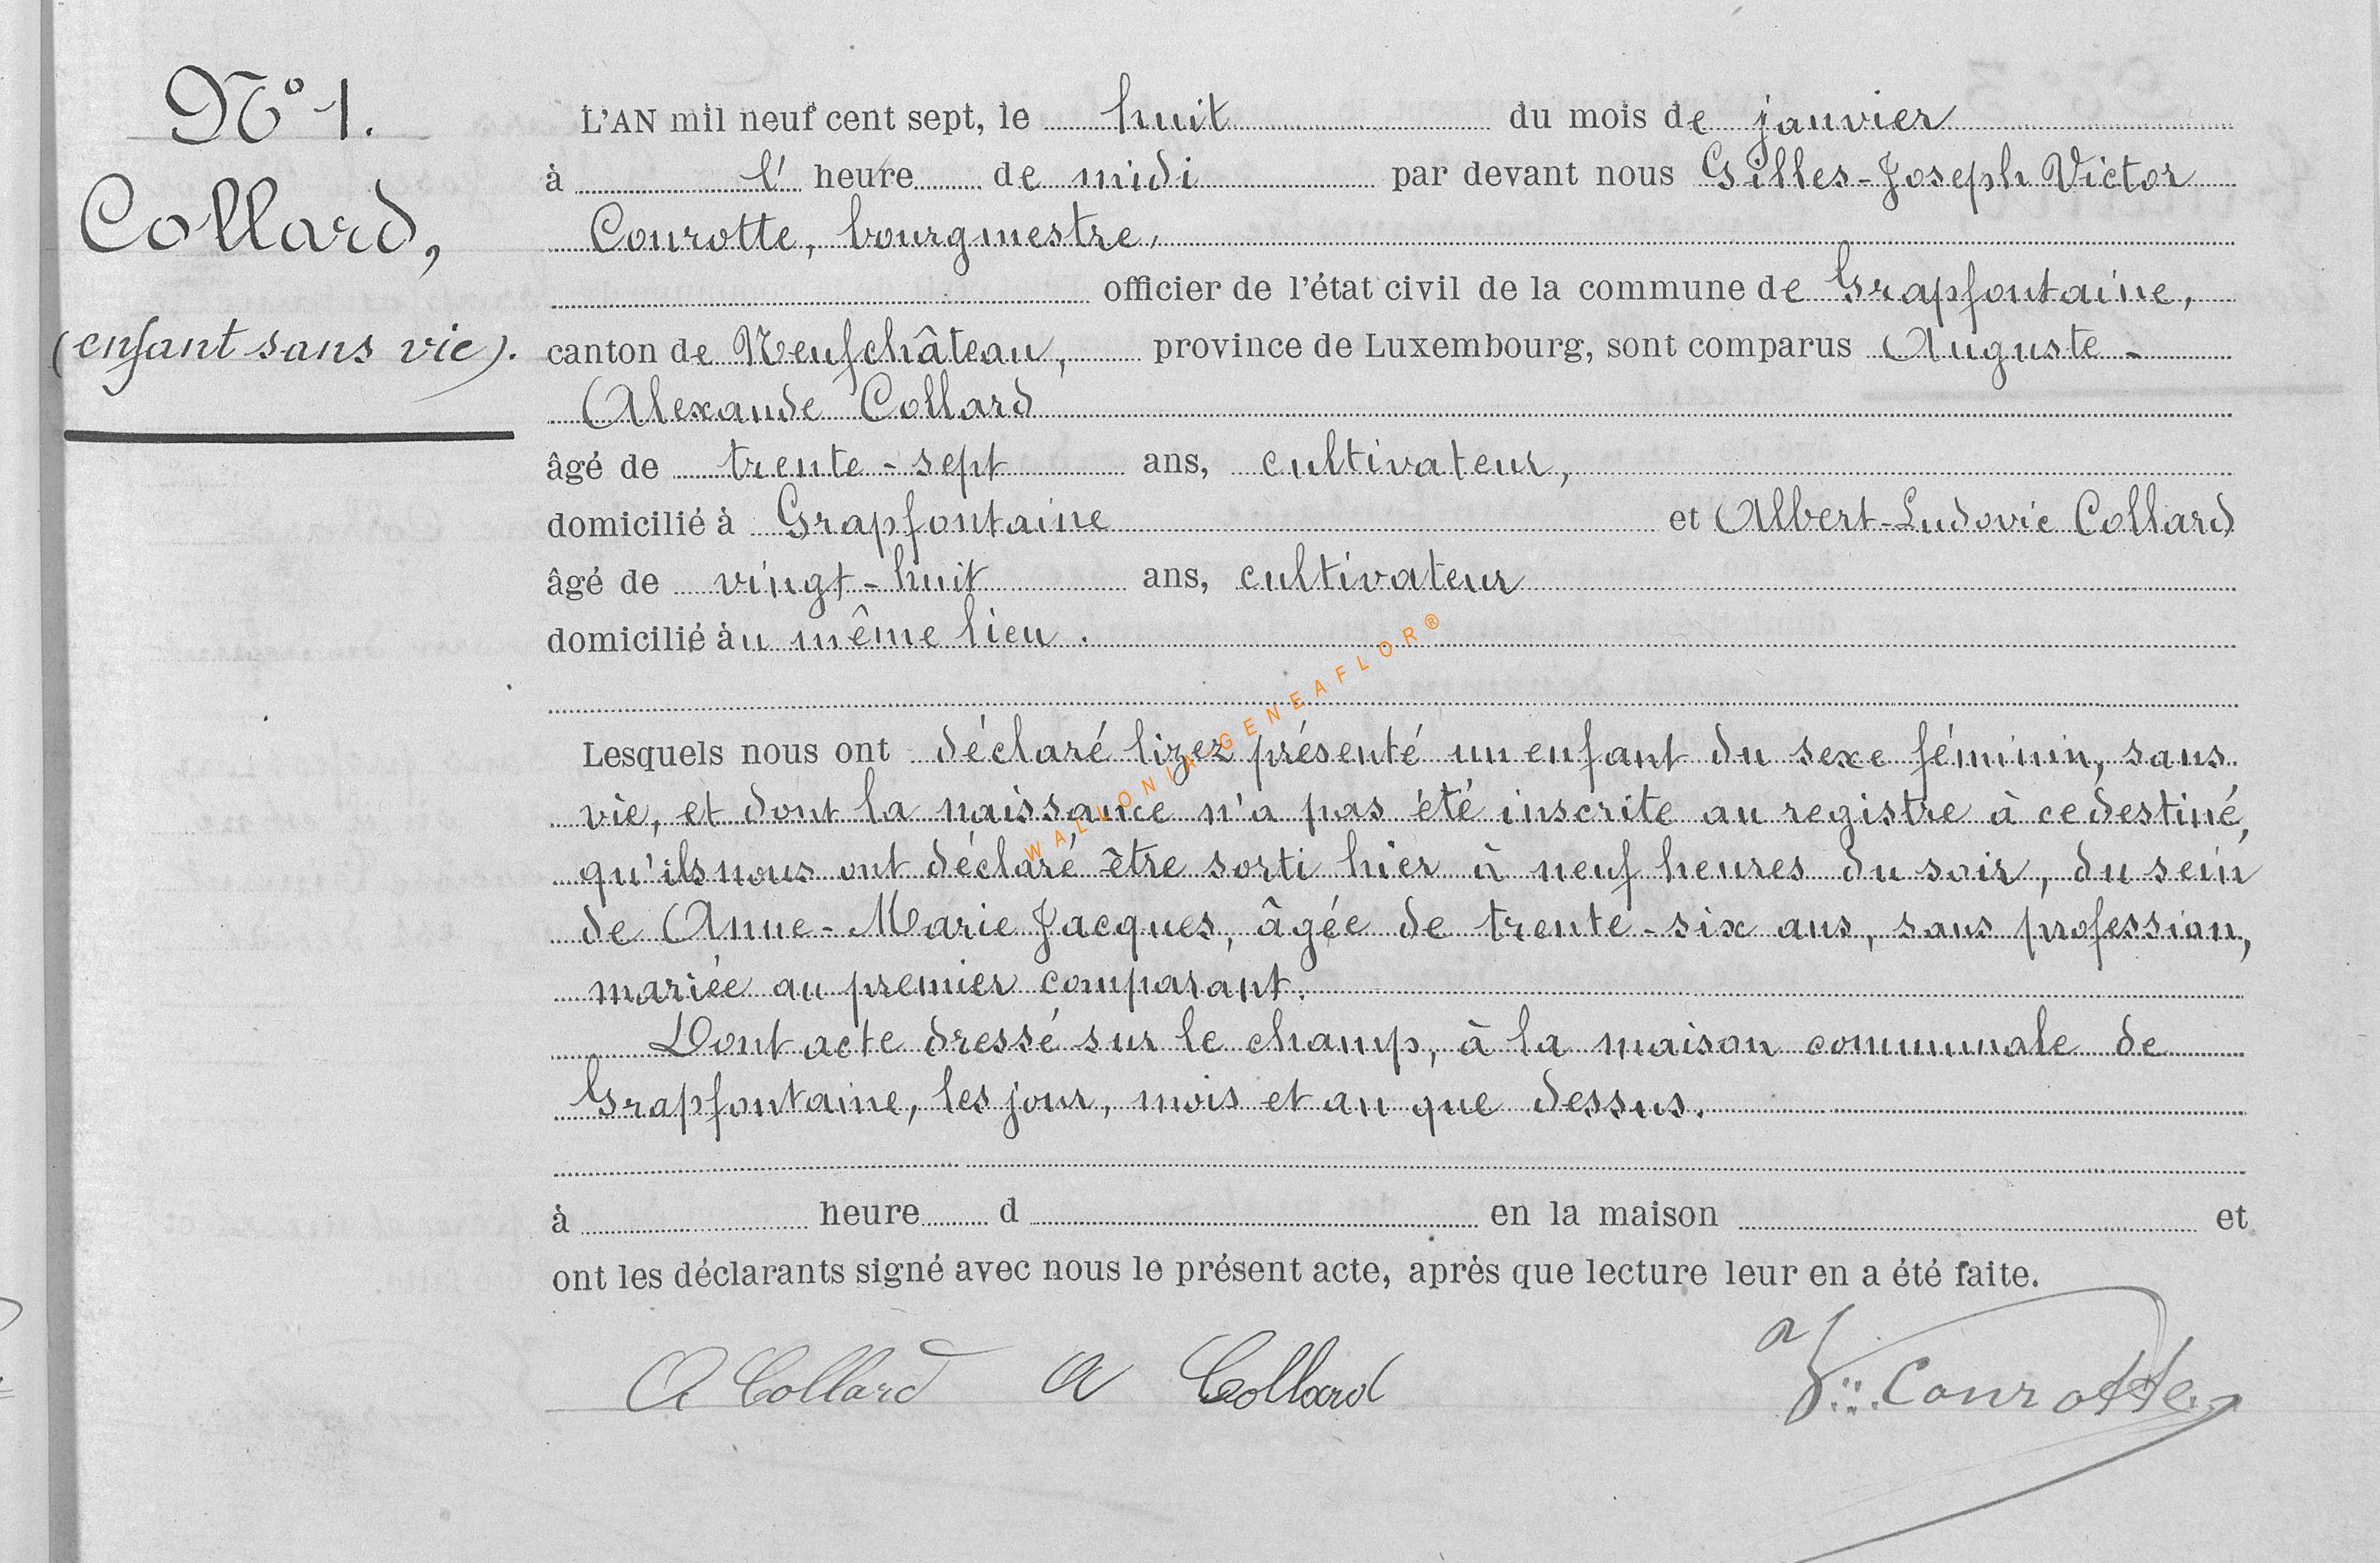 N° 1.
Collard,
(enfant sans vie).
L'AN mil neuf cent sept, le huit du mois de janvier
à l' heure de midi par devant nous Gilles-Joseph Victor
Courotte, bourgmestre,
officier de l'état civil de la commune de Grapfontaine,
canton de Neufchâteau, province de Luxembourg, sont comparus Auguste-
Alexande Collard
âgé de trente-sept ans, cultivateur,
domicilié à Grapfontaine et Albert-Ludovic Collard
âgé de vingt-huit ans, cultivateur
domicilié àu même lieu.
Lesquels nous ont déclaré lizez présenté un enfant du sexe féminin, sans
vie, et dont la naissance n'a pas été inscrite au registre à ce destiné,
qu'ils nous ont déclaré être sorti hier à neuf heures du soir, du sein
de Anne-Marie Jacques, âgée de trente-six ans, sans profession,
mariée au premier comparant.
Dont acte dressé sur le champ, à la maison communale de
Grapfontaine, les jour, mois et an que dessus.
à heure d en la maison et
ont les déclarants signé avec nous le présent acte, après que lecture leur en a été faite.
A Collard A Collard Courotte
WALLONIA-GENEAFLOR®